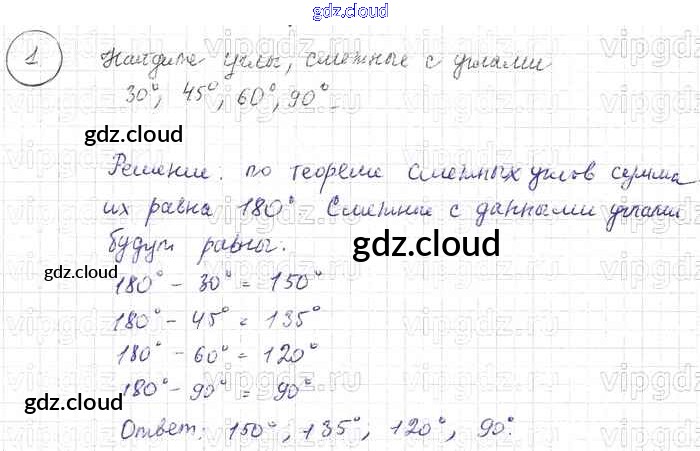 gdz.cloud
1 Найдите углы, смежные с углами
30°, 45°, 60°, 90°.
gdz.cloud
Решение: по теореме смежных углов сумма
их равна 180°. Смежные с данными углами
будут равны:
gdz.cloud
gdz.cloud
180° - 30° = 150°
180° - 45° = 135°
180° - 60° = 120°
180° - 90° = 90°
gdz.cloud
Ответ: 150°, 135°, 120°, 90°.